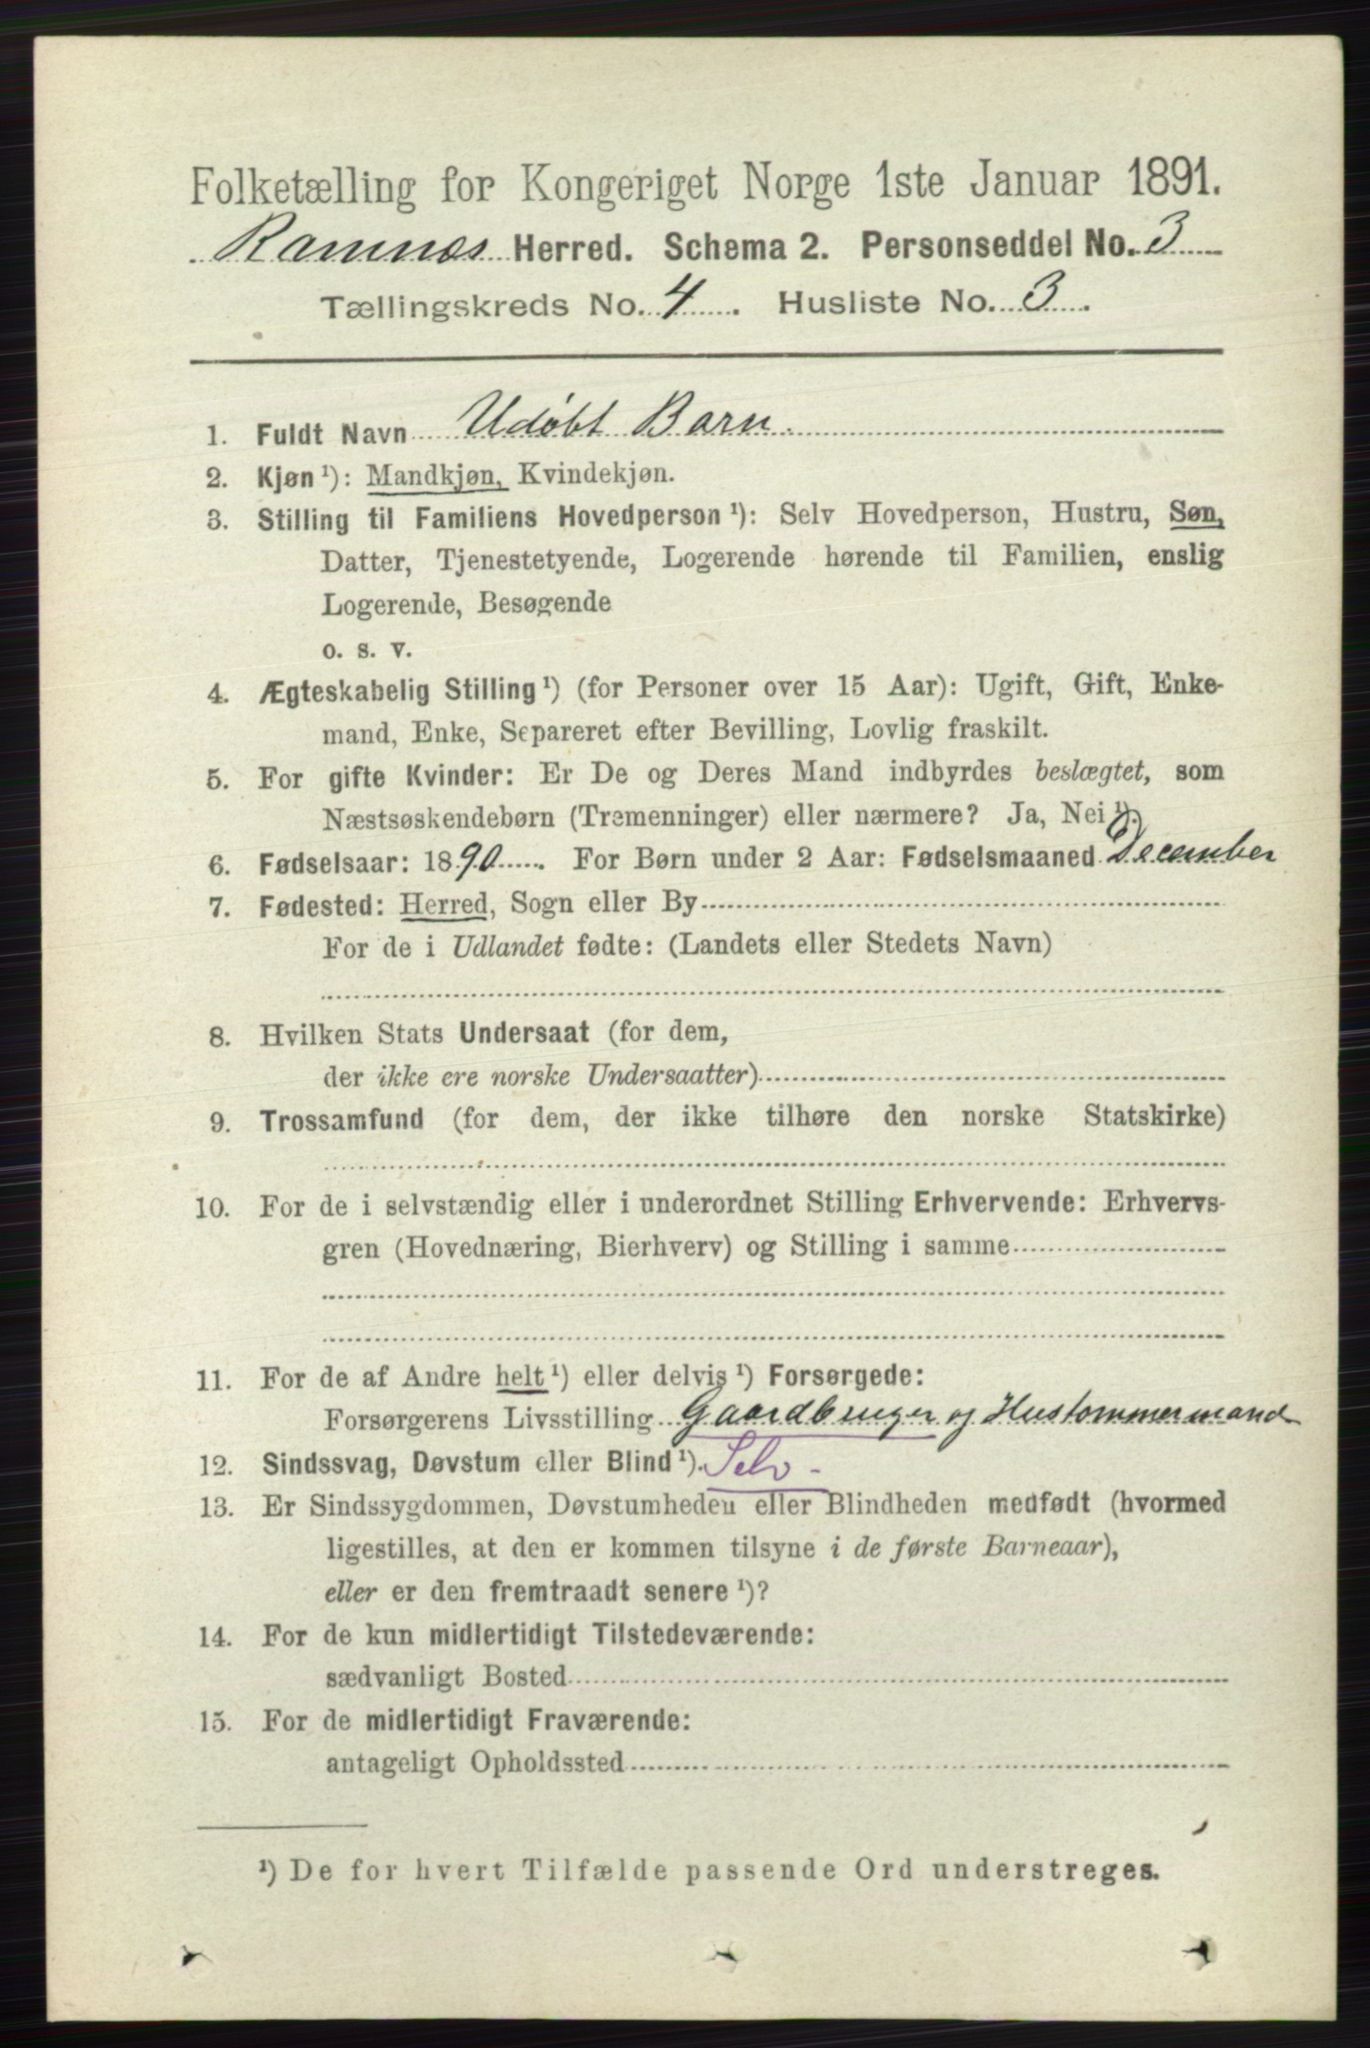 Folketælling for Kongeriget Norge 1ste Januar 1891.
Ramnes Herred. Schema 2. Personseddel No. 3
Tællingskreds No. 4. Husliste No. 3.
1. Fuldt Navn Udøbt Barn.
2. Kjøn ¹): Mandkjøn, Kvindekjøn.
3. Stilling til Familiens Hovedperson ¹): Selv Hovedperson, Hustru, Søn,
Datter, Tjenestetyende, Logerende hørende til Familien, enslig
Logerende, Besøgende
o. s. v.
4. Ægteskabelig Stilling ¹) (for Personer over 15 Aar): Ugift, Gift, Enke-
mand, Enke, Separeret efter Bevilling, Lovlig fraskilt.
5. For gifte Kvinder: Er De og Deres Mand indbyrdes beslægtet, som
Næstsøskendebørn (Tremenninger) eller nærmere? Ja, Nei ¹).
6. Fødselsaar: 1890. For Børn under 2 Aar: Fødselsmaaned December
7. Fødested: Herred, Sogn eller By
For de i Udlandet fødte: (Landets eller Stedets Navn)
8. Hvilken Stats Undersaat (for dem,
der ikke ere norske Undersaatter)
9. Trossamfund (for dem, der ikke tilhøre den norske Statskirke)
10. For de i selvstændig eller i underordnet Stilling Erhvervende: Erhvervs-
gren (Hovednæring, Bierhverv) og Stilling i samme
11. For de af Andre helt ¹) eller delvis ¹) Forsørgede:
Forsørgerens Livsstilling Gaardbruger og Hustømmermand
12. Sindssvag, Døvstum eller Blind ¹). Selv -
13. Er Sindssygdommen, Døvstumheden eller Blindheden medfødt (hvormed
ligestilles, at den er kommen tilsyne i de første Barneaar),
eller er den fremtraadt senere ¹)?
14. For de kun midlertidigt Tilstedeværende:
sædvanligt Bosted
15. For de midlertidigt Fraværende:
antageligt Opholdssted
¹) De for hvert Tilfælde passende Ord understreges.